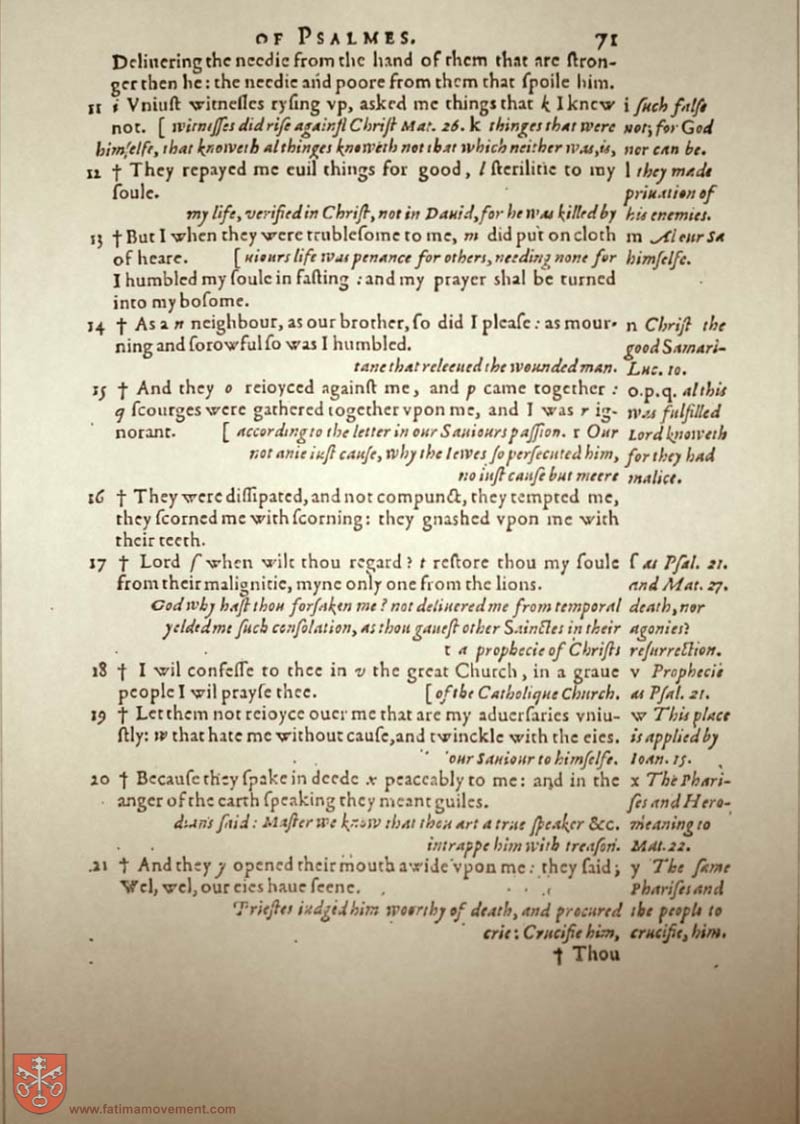 OF PSALMES. 71
Deliuering the needie from the hand of them that are ſtron-
ger then he: the needie and poore from them that ſpoile him.
11 i Vniuſt witneſſes ryſing vp, asked me things that k I knew i ſuch falſe
not. [ witneſſes did riſe againſt Chriſt Mat. 26. k thinges that were not; for God
himſelfe, that knoweth al thinges knoweth not that which neither was, is, nor can be.
12 † They repayed me euil things for good, l ſterilitie to my l they made
ſoule. priuation of
my life, verified in Chriſt, not in Dauid, for he was killed by his enemies.
13 † But I when they were trubleſome to me, m did put on cloth m Al our Sa
of heare. [ uiours life was penance for others, needing none for himſelfe.
I humbled my ſoule in faſting : and my prayer shal be turned
into my boſome.
14 † As a n neighbour, as our brother, ſo did I pleaſe : as mour- n Chriſt the
ning and ſorowful ſo was I humbled. good Samari-
tane that releeued the wounded man. Luc. 10.
15 † And they o reioyced againſt me, and p came together : o.p.q. al this
q ſcourges were gathered together vpon me, and I was r ig- was fulfilled
norant. [ according to the letter in our Sauiours paſſion. r Our Lord knoweth
not anie iuſt cauſe, why the Iewes ſo perſecuted him, for they had
no iuſt cauſe but meere malice.
16 † They were diſſipated, and not compunct, they tempted me,
they ſcorned me with ſcorning: they gnashed vpon me with
their teeth.
17 † Lord ſ when wilt thou regard? t reſtore thou my ſoule ſ as Pſal. 21.
from their malignitie, myne only one from the lions. and Mat. 27.
God why haſt thou forſaken me? not deliuered me from temporal death, nor
yelded me ſuch conſolation, as thou gaueſt other Sainctes in their agonies?
t a prophecie of Chriſts reſurrection.
18 † I wil confeſſe to thee in v the great Church, in a graue v Prophecie
people I wil prayſe thee. [ of the Catholique Church. as Pſal. 21.
19 † Let them not reioyce ouer me that are my aduerſaries vniu- w This place
ſtly: w that hate me without cauſe, and twinckle with the eies. is applied by
our Sauiour to himſelfe. Ioan. 15.
20 † Becauſe they ſpake in deede x peaceably to me: and in the x The Phari-
anger of the earth ſpeaking they meant guiles. ſes and Hero-
dians ſaid: Maſter we know that thou art a true ſpeaker &c. meaning to
intrappe him with treaſon. Mat. 22.
21 † And they y opened their mouth a wide vpon me: they ſaid; y The ſame
Wel, wel, our eies haue ſeene. Phariſes and
Prieſtes iudged him woorthy of death, and procured the people to
crie: Crucifie him, crucifie, him.
† Thou
www.fatimamovement.com